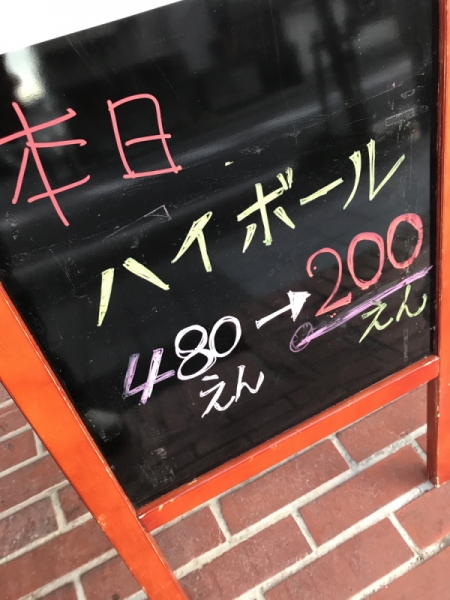 本日
ハイボール
480えん→200えん